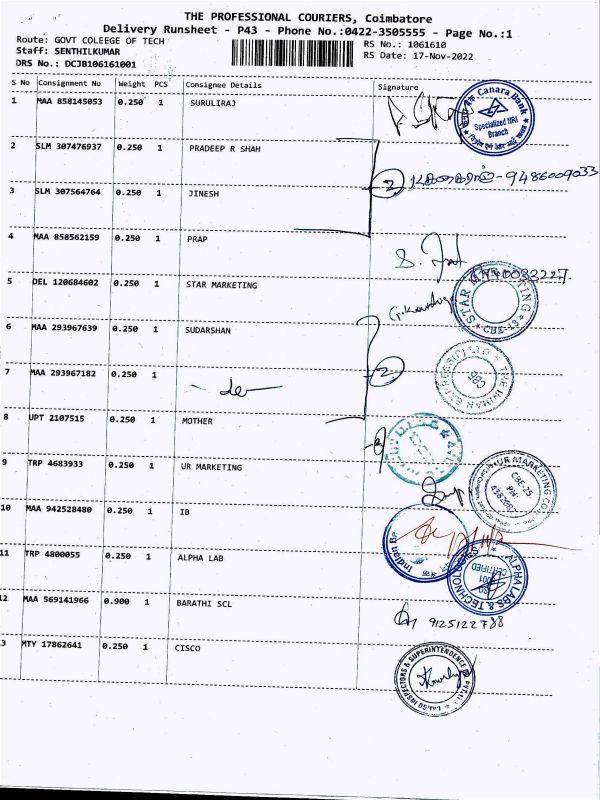 THE PROFESSIONAL COURIERS, Coimbatore
Delivery Runsheet - P43 - Phone No.:0422-3505555 - Page No.:1
Route: GOVT COLEEGE OF TECH
Staff: SENTHILKUMAR
DRS No.: DCJB106161001
RS No.: 1061610
RS Date: 17-Nov-2022
S No Consignment No Weight PCS Consignee Details Signature
1 MAA 858145053 0.250 1 SURULIRAJ
Canara Bank
Specialized NRI
Branch
2 SLM 307476937 0.250 1 PRADEEP R SHAH
2 கனகராஜ் - 9486009033
3 SLM 307564764 0.250 1 JINESH
4 MAA 858562159 0.250 1 PRAP
5 DEL 120684602 0.250 1 STAR MARKETING
STAR MARKETING
* CBE-13 *
6 MAA 293967639 0.250 1 SUDARSHAN
7 MAA 293967182 0.250 1
2
8 UPT 2107515 1 MOTHER
9 TRP 4683933 0.250 1 UR MARKETING
UR MARKETING
CBE-25
10 MAA 942528480 0.250 1 IB
Indian
11 TRP 4800055 0.250 1 ALPHA LAB
ALPHA LABS & TECHNOLOGIES
CERTIFIED
12 MAA 569141966 0.900 1 BARATHI SCL
9125122788
3 MTY 17862641 0.250 1 CISCO
INSPECTORS & SUPERINTENDENCE